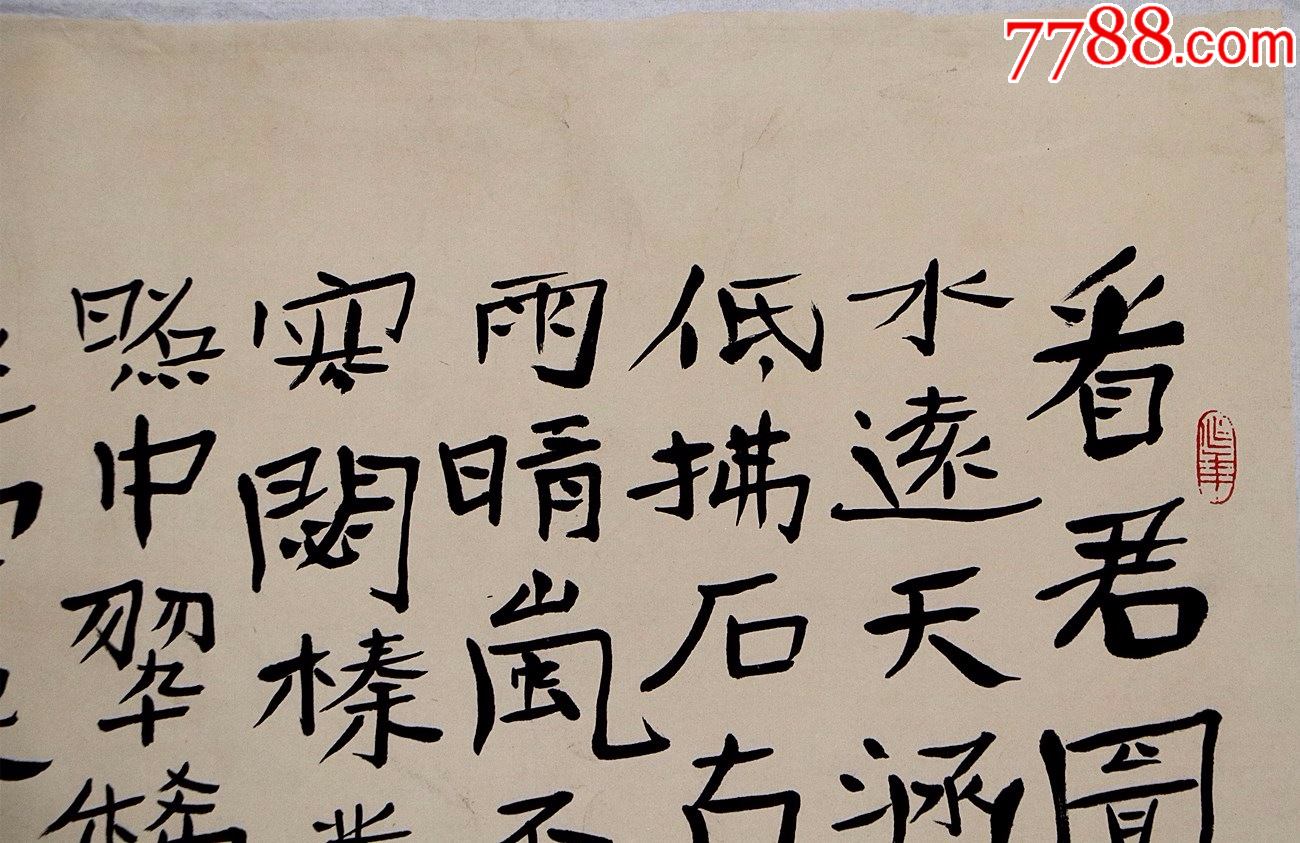 7788.com
看君圖
水遠天涵
低拂石右
雨晴嵐不
寒閟榛
照中翠